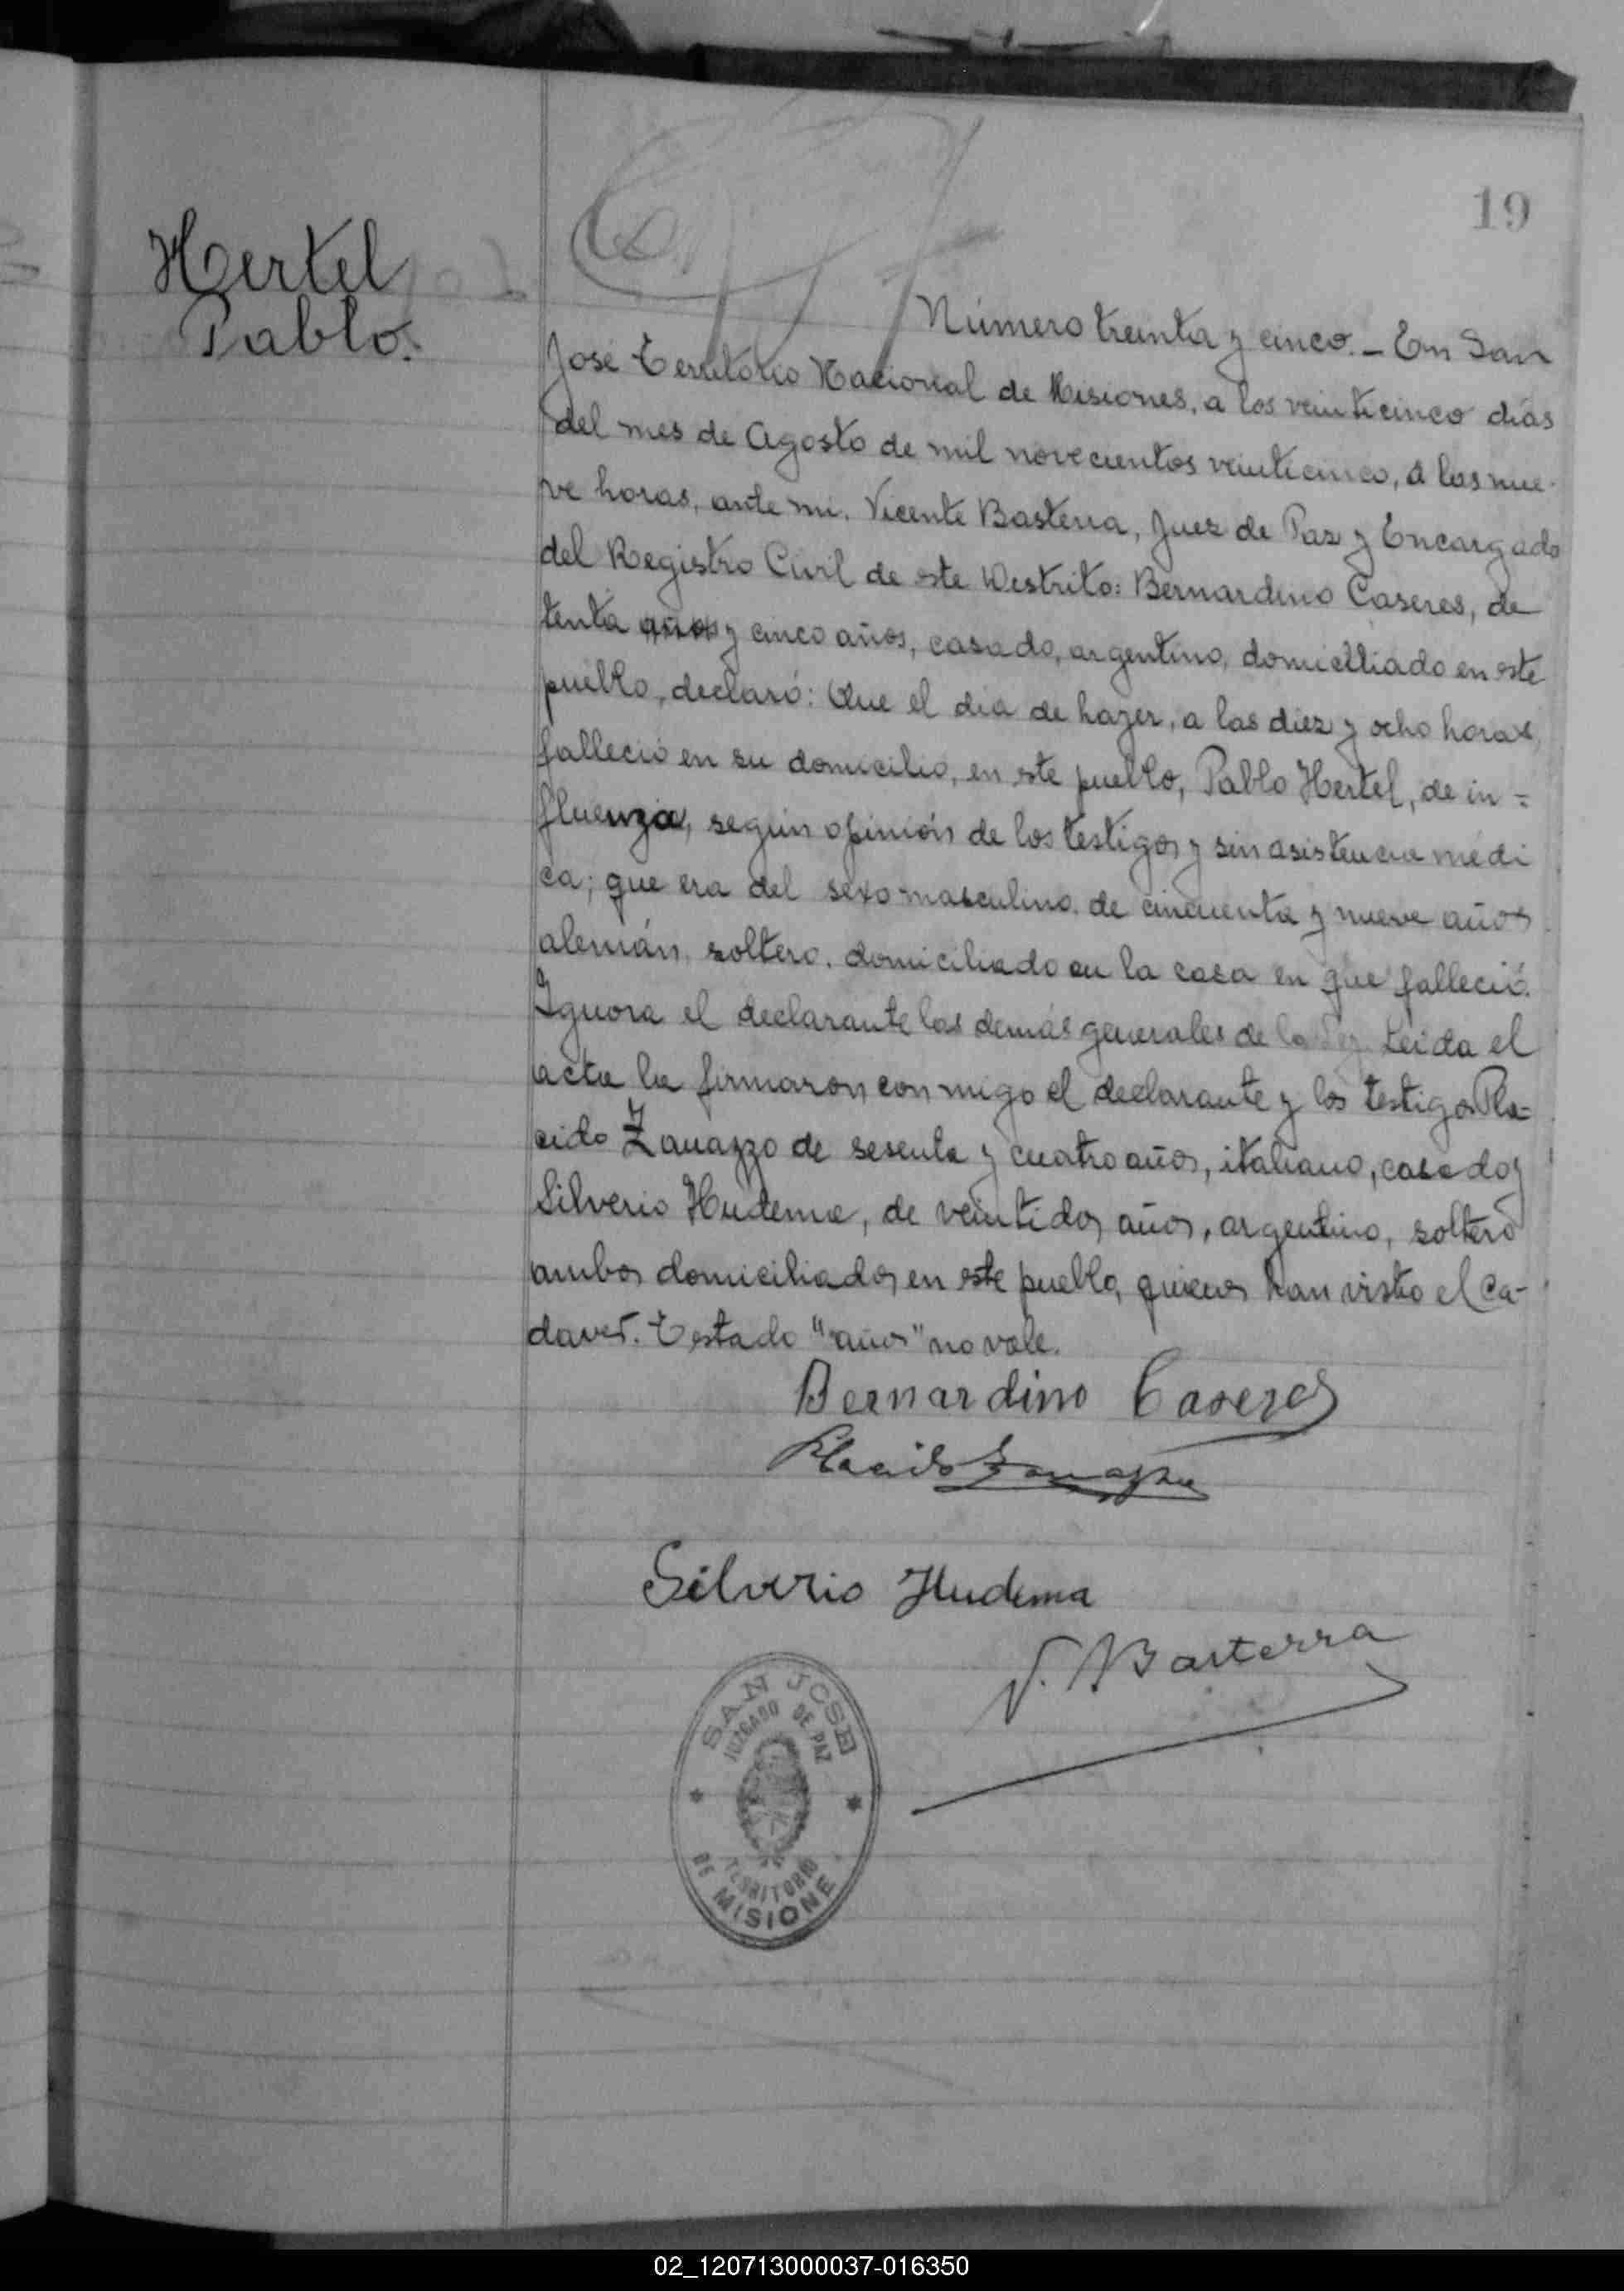 19
Hertel
Pablo.
Número treinta y cinco.- En San
José Territorio Nacional de Misiones, a los veinticinco días
del mes de Agosto de mil novecientos veinticinco, a las nue-
ve horas, ante mi, Vicente Basterra, Juez de Paz y Encargado
del Registro Civil de este Distrito: Bernardino Caseres, de
tenta años y cinco años, casado, argentino, domicilliado en este
pueblo, declaró: Que el dia de hayer, a las diez y ocho horas,
falleció en su domicilio, en este pueblo, Pablo Hertel, de in=
fluenza, según opinión de los testigos y sin asistencia médi
ca; que era del sexo masculino, de cincuenta y nueve años
alemán, soltero, domiciliado en la casa en que falleció.
Ignora el declarante las demás generales de la Ley. Leida el
acta la firmaron con migo el declarante y los testigos Pla=
cido Zanazzo de sesenta y cuatro años, italiano, casado y
Silverio Hudema, de veintidos años, argentino, soltero
ambos domiciliados en este pueblo, quienes han visto el Ca-
daver. Testado "años" no vale.
Bernardino Caseres
Placido Zanazzo
Silverio Hudema
V. Basterra
SAN JOSE
JUZGADO DE PAZ
TERRITORIO
DE MISIONE
02_120713000037-016350